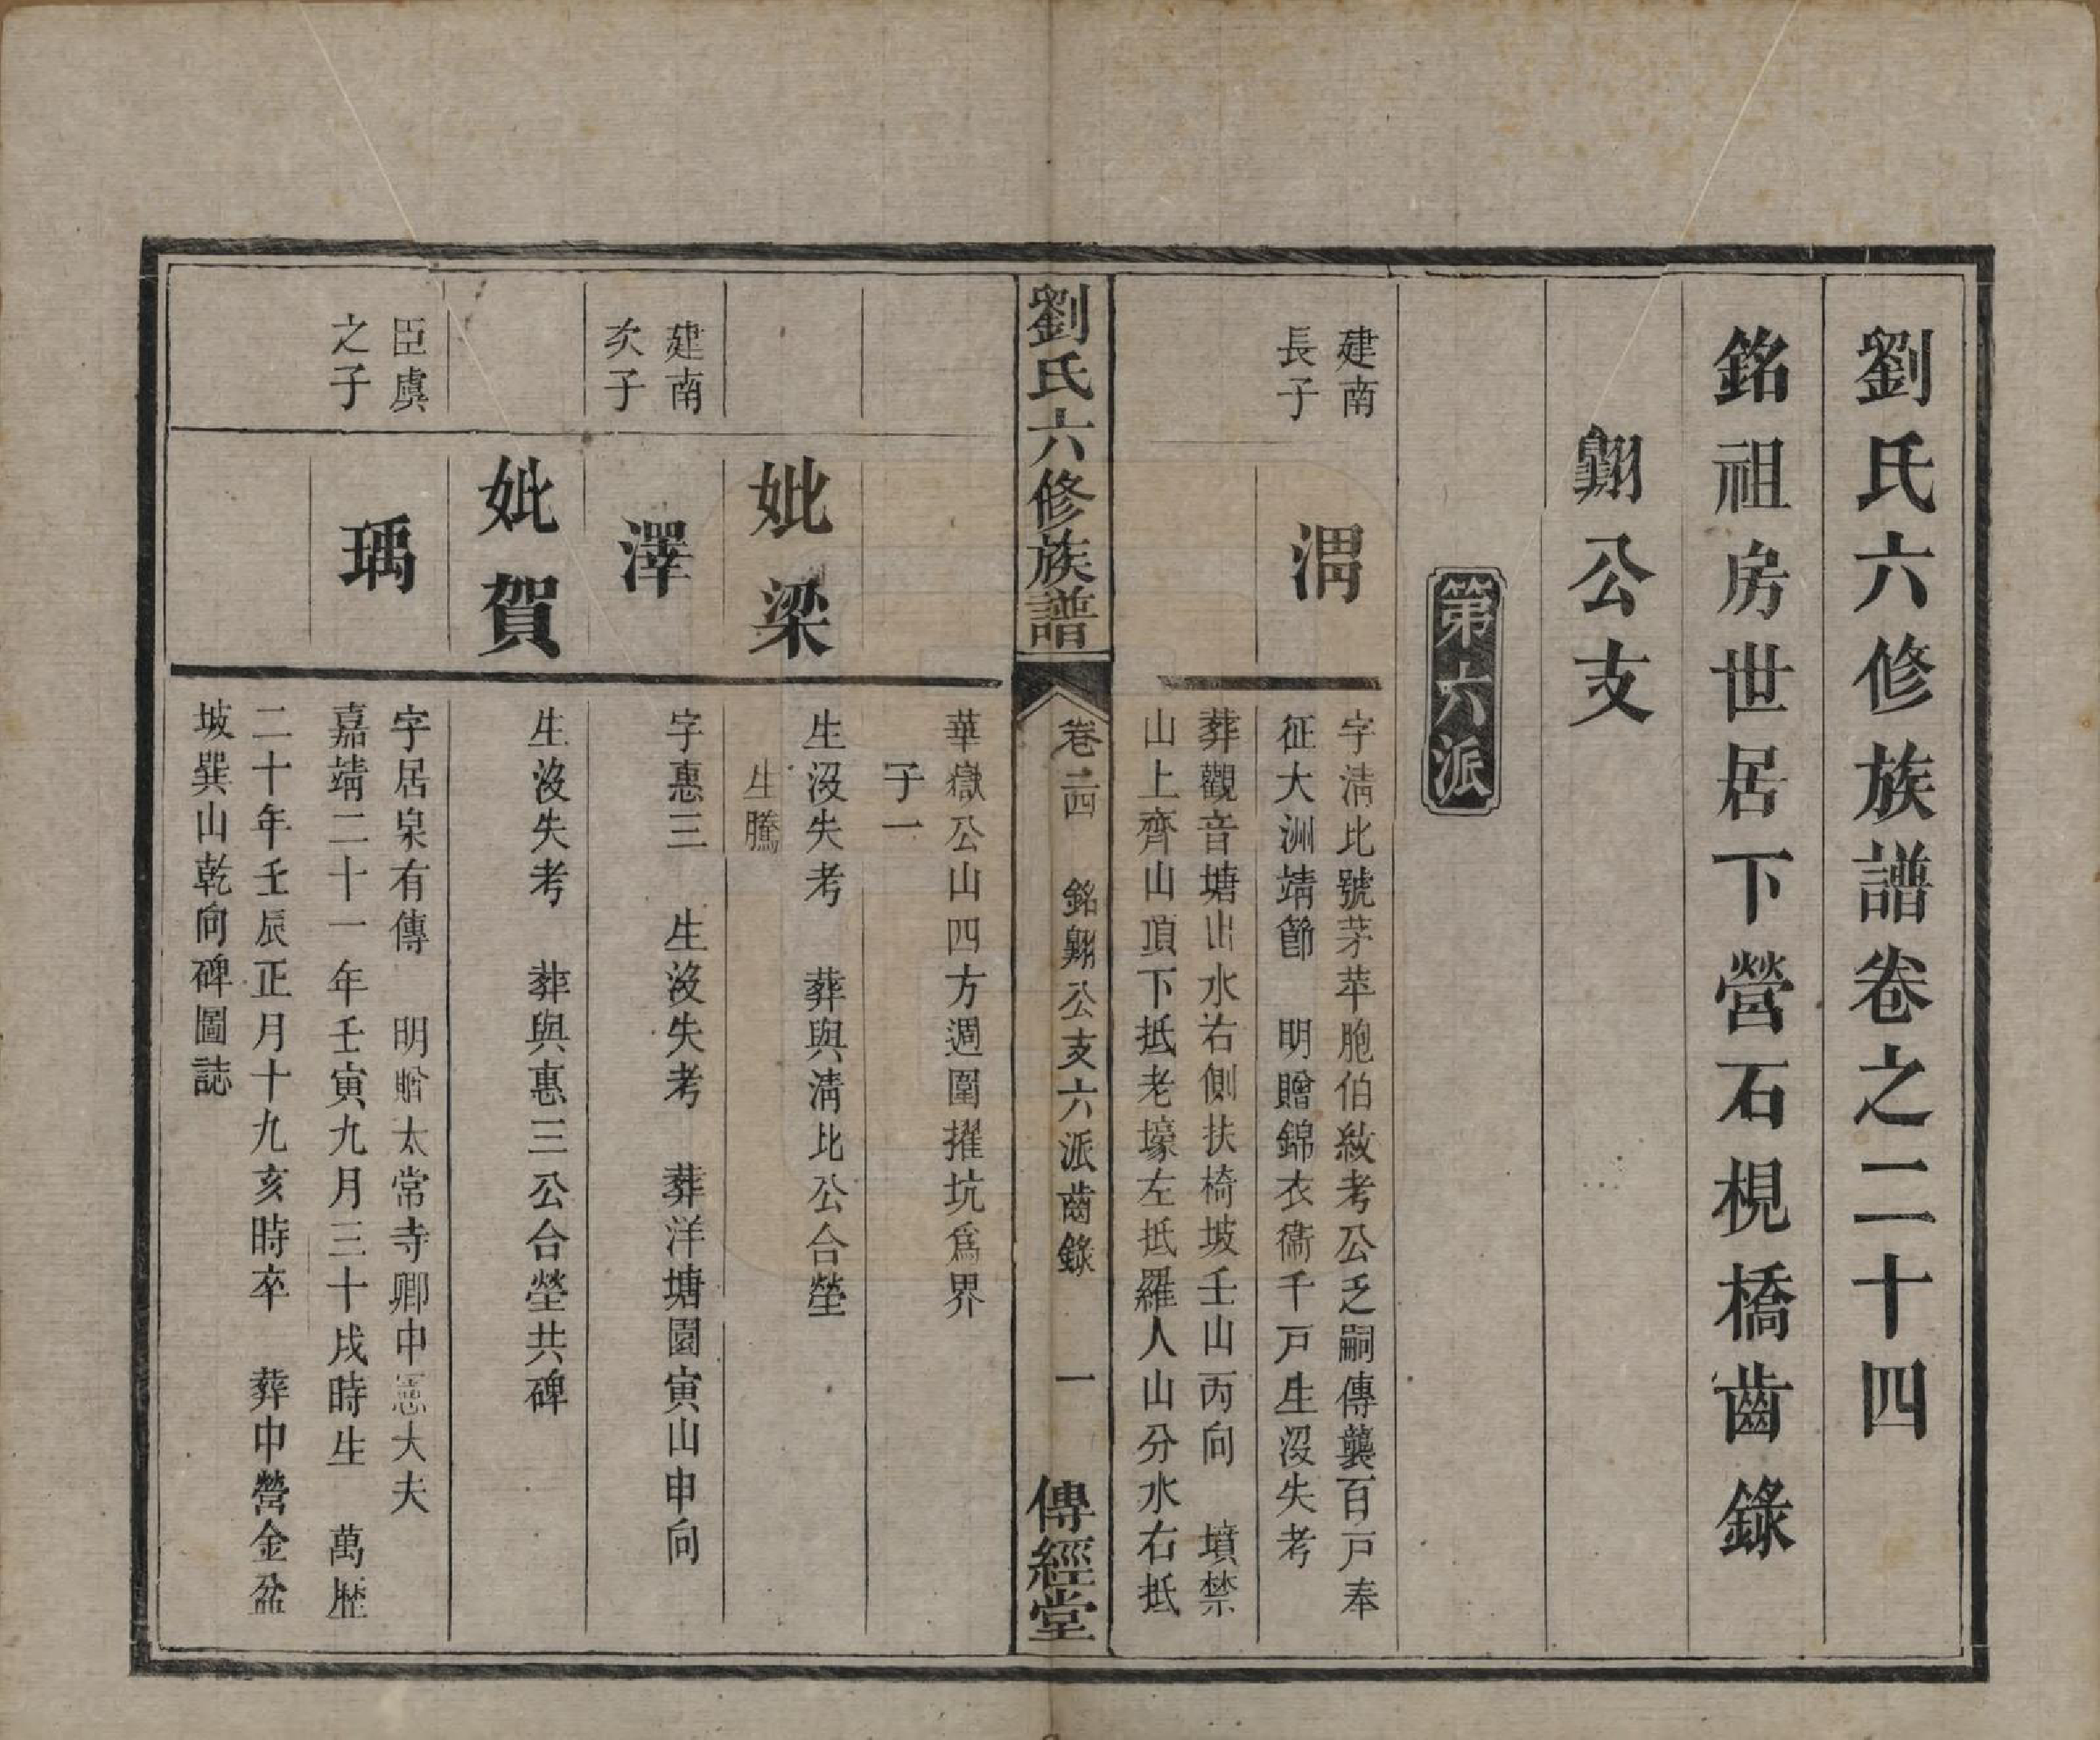 劉氏六修族譜卷之二十四
銘祖房世居下營石梘橋齒錄
翺公支
第六派
建南
長子
渭
字清比號茅苹胞伯敘考公乏嗣傳襲百戸奉
征大洲靖節　明贈錦衣衞千戸生没失考
葬觀音塘出水右側扶椅坡壬山丙向　墳禁
山上齊山頂下抵老壕左抵羅人山分水右抵
劉氏六修族譜
卷二四　銘翺公支六派齒錄　一
傳經堂
華嶽公山四方週圍擢坑爲界
子一
妣梁
生没失考　葬與清比公合塋
生騰
建南
次子
澤
字惠三　生没失考　葬洋塘園寅山申向
妣賀
生没失考　葬與惠三公合塋共碑
臣虞
之子
瑀
字居泉有傳　明贈太常寺卿中憲大夫
嘉靖二十一年壬寅九月三十戌時生　萬歴
二十年壬辰正月十九亥時卒　葬中營金盆
坡巽山乾向碑圖誌